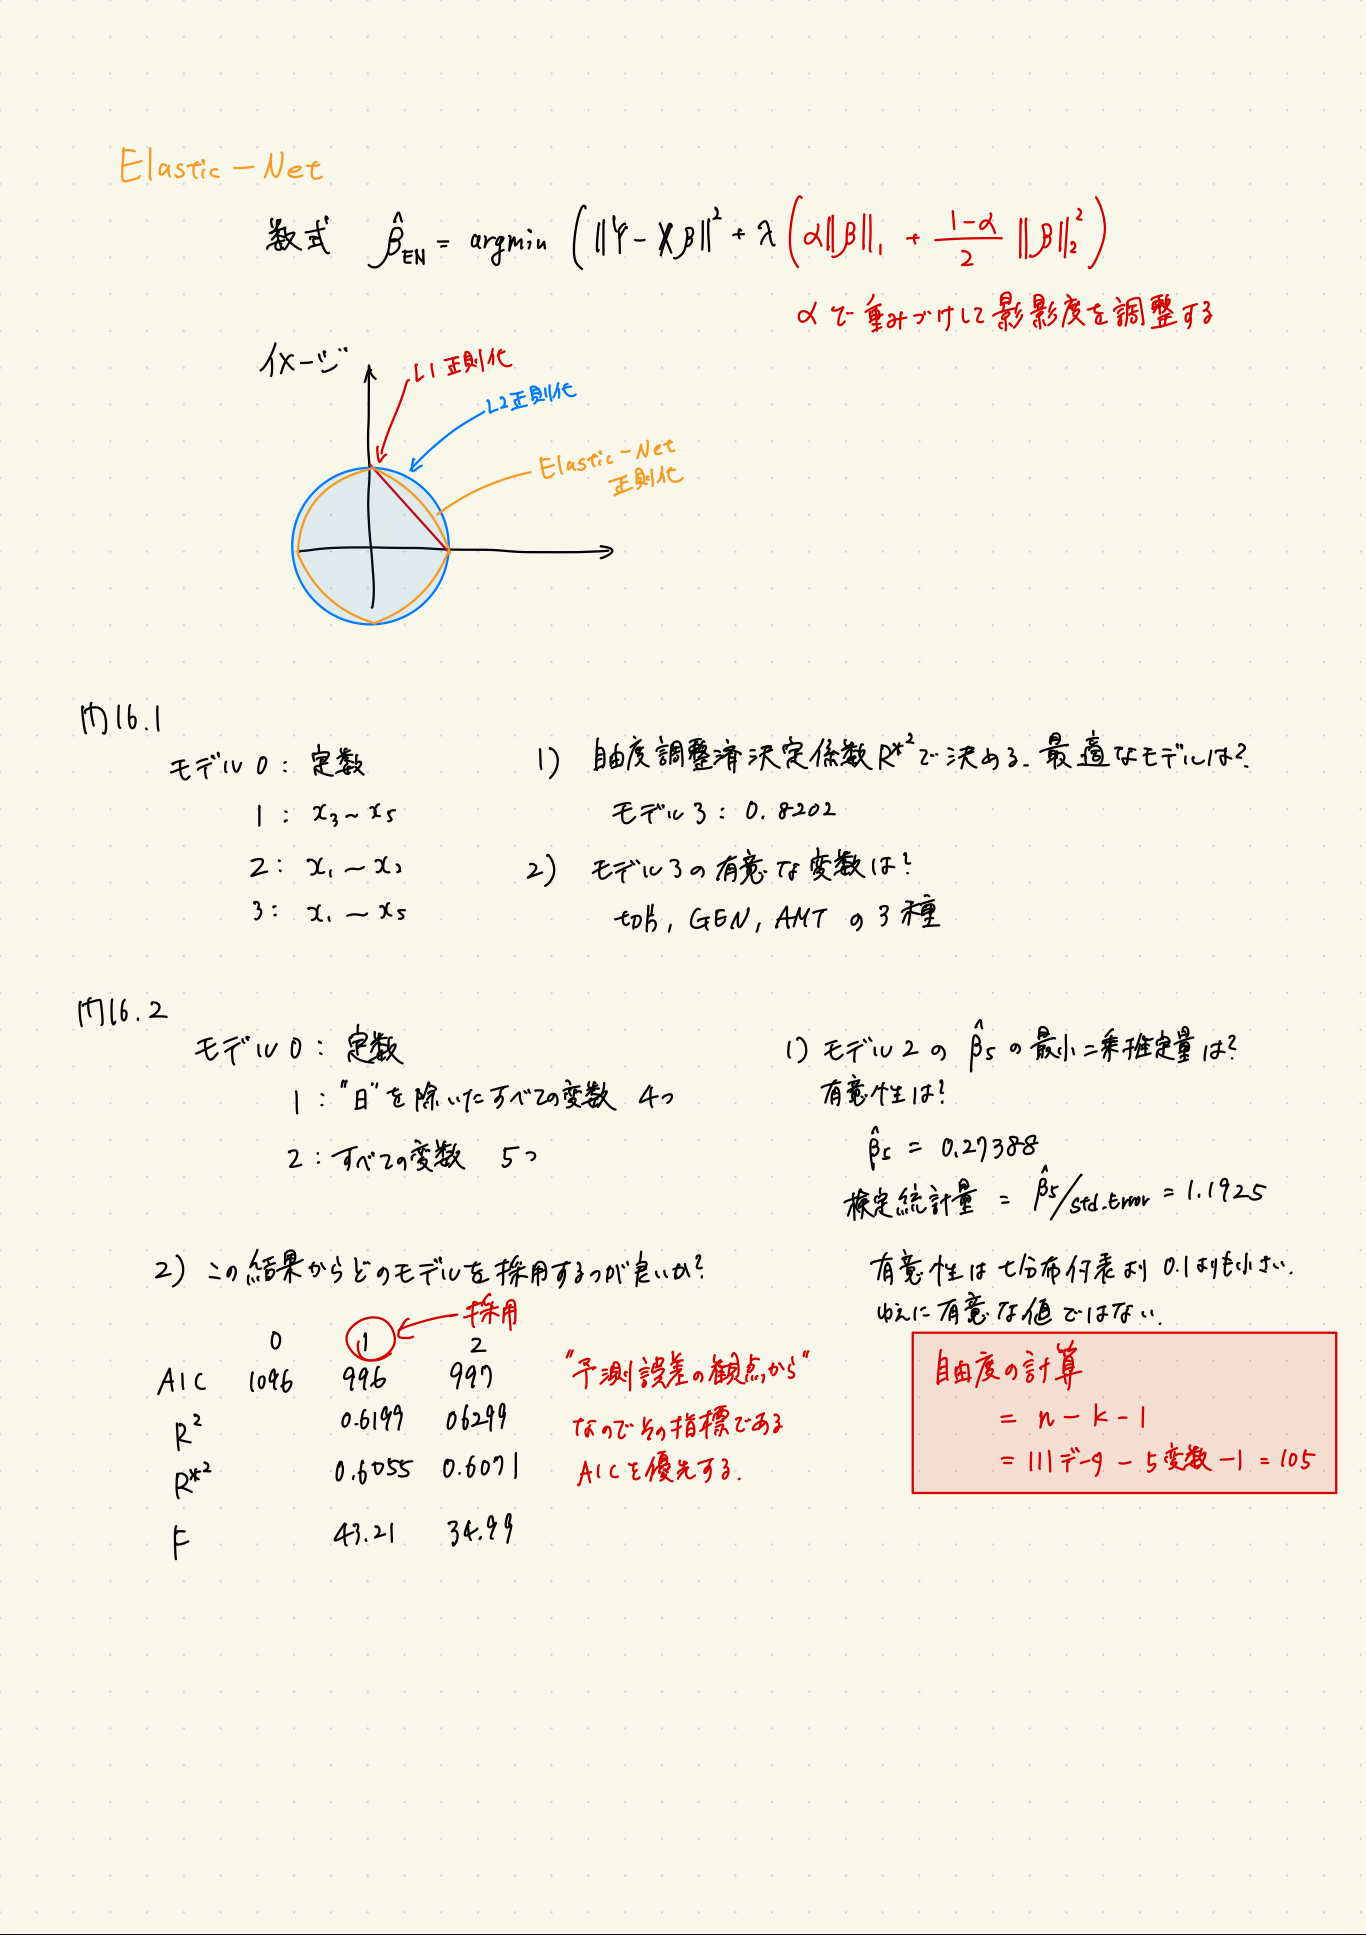 Elastic-Net
数式 β̂_EN = argmin (||Y - Xβ||² + λ(α||β||₁ + (1-α)/2 ||β||₂²)
αで重みづけして影影度を調整する
イメージ
L1正則化
L2正則化
Elastic-Net
正則化
問16.1
モデル0: 定数
1: x₃~x₅
2: x₁~x₂
3: x₁~x₅
1) 自由度調整済決定係数R*²で決める. 最適なモデルは?
モデル3: 0.8202
2) モデル3の有意な変数は?
切片, GEN, AMTの3種
問16.2
モデル0: 定数
1: "日"を除いたすべての変数 4つ
2: すべての変数 5つ
1) モデル2のβ̂₅の最小二乗推定量は?
有意性は?
β̂₅ = 0.27388
検定統計量 = β̂₅/Std.Error = 1.1925
有意性はt分布付表より0.1よりも小さい.
ゆえに有意な値ではない.
自由度の計算
= n-k-1
= 111データ - 5変数 -1 = 105
2) この結果からどのモデルを採用するのが良いか?
採用
0 1 2
AIC 1096 996 997
R² 0.6199 06299
R*² 0.6055 0.6071
F 43.21 34.99
"予測誤差の観点から"
なのでその指標である
AICを優先する.